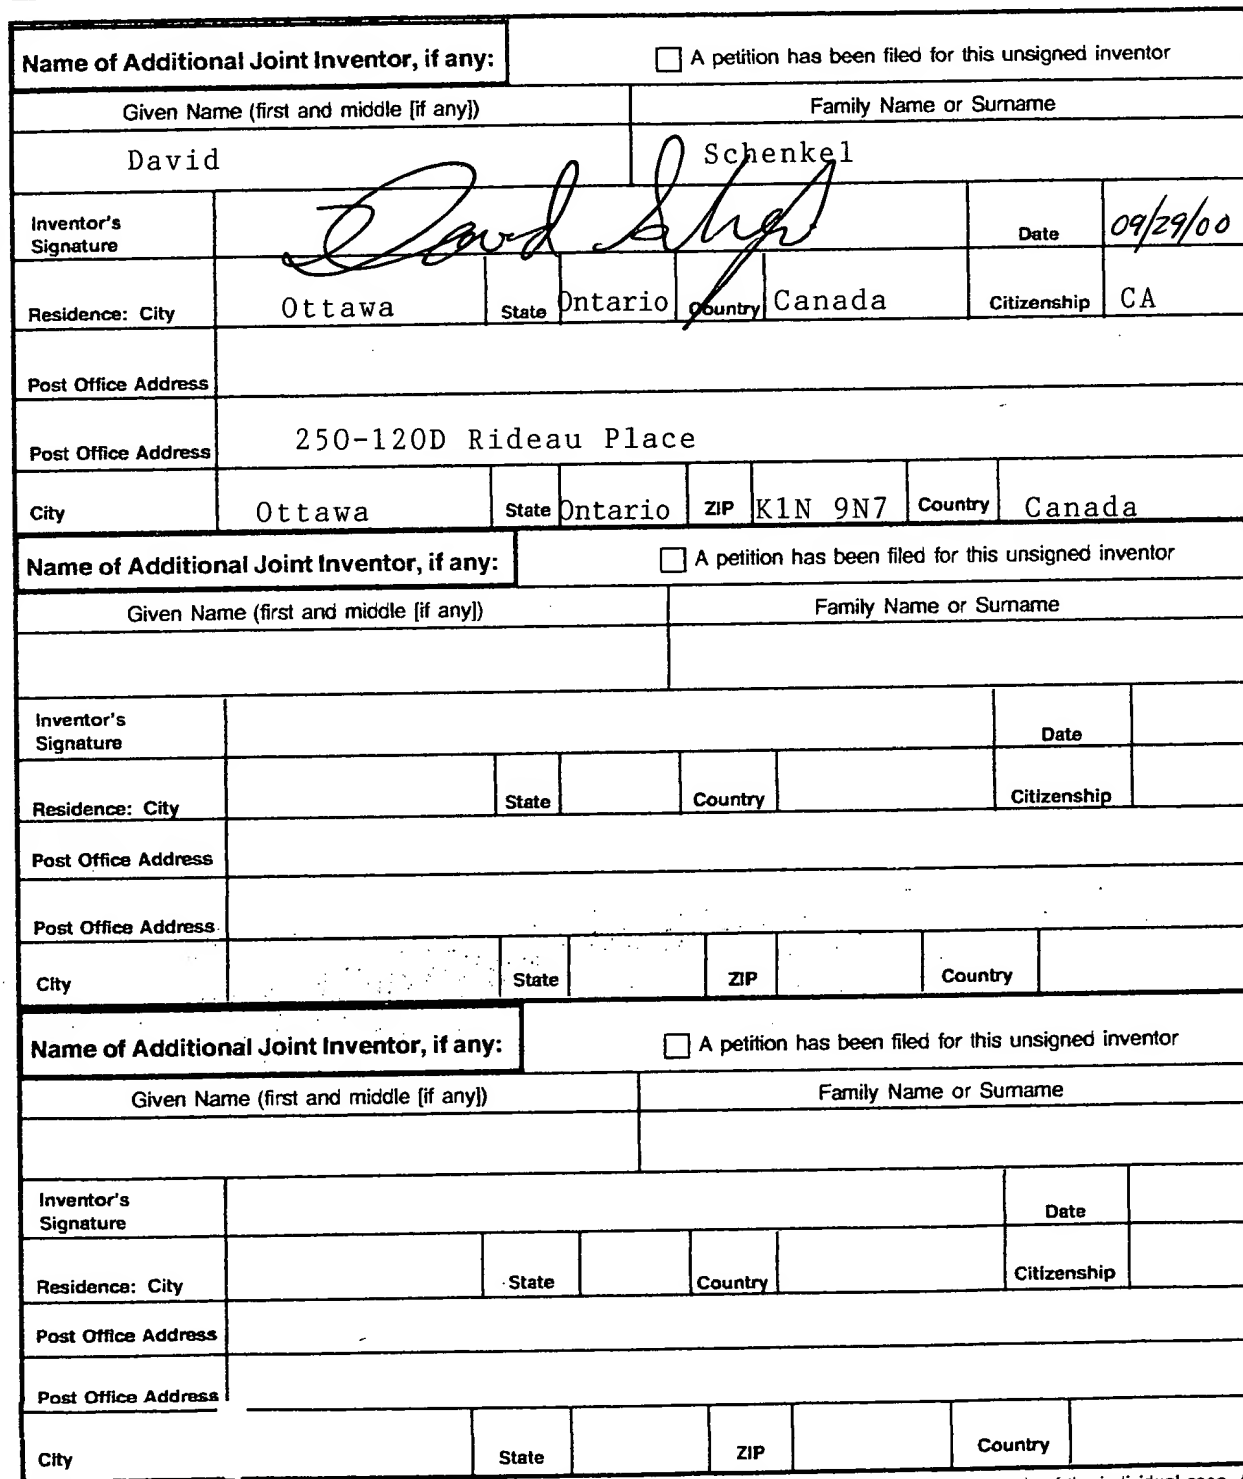 Name of Additional Joint Inventor, if any: A petition has been filed for this unsigned inventor
Given Name (first and middle [if any]) Family Name or Surname
David Schenkel
Inventor's
Signature David Date 09/29/00
Residence: City Ottawa State Ontario Country Canada Citizenship CA
Post Office Address
Post Office Address 250-120D Rideau Place
City Ottawa State Ontario ZIP K1N 9N7 Country Canada
Name of Additional Joint Inventor, if any: A petition has been filed for this unsigned inventor
Given Name (first and middle [if any]) Family Name or Surname
Inventor's
Signature Date
Residence: City State Country Citizenship
Post Office Address
Post Office Address
City State ZIP Country
Name of Additional Joint Inventor, if any: A petition has been filed for this unsigned inventor
Given Name (first and middle [if any]) Family Name or Surname
Inventor's
Signature Date
Residence: City State Country Citizenship
Post Office Address
Post Office Address
City State ZIP Country